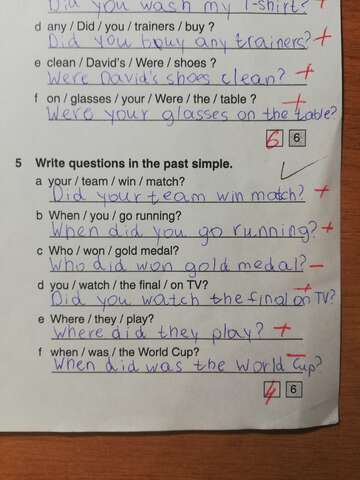 Did you wash my T-shirt? +
d any / Did / you / trainers / buy ?
Did you buy any trainers? +
e clean / David's / Were / shoes ?
Were David's shoes clean? +
f on / glasses / your / Were / the / table ? +
Were your glasses on the table?
6 6
5 Write questions in the past simple.
a your / team / win / match?
Did your team win match? +
b When / you / go running?
When did you go running? +
c Who / won / gold medal?
Who did won gold medal? –
d you / watch / the final / on TV? +
Did you watch the final on TV?
e Where / they / play?
Where did they play? +
f when / was / the World Cup? –
When did was the World Cup?
4 6